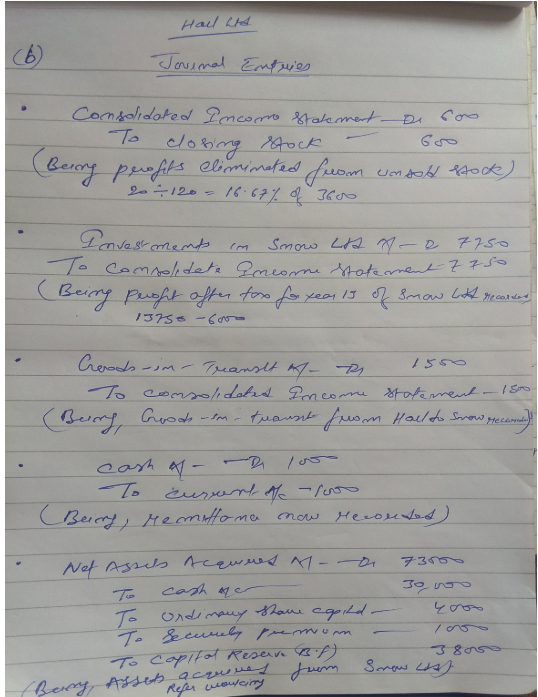 Hail Ltd
(b)
Journal Entries
• Consolidated Income Statement — Dr 600
To closing stock — 600
(Being profits eliminated from unsold stock)
20 ÷ 120 = 16.67% of 3600
• Investments in Snow Ltd A/c — Dr 7750
To Consolidate Income Statement - 7750
(Being profit after tax for year 13 of Snow Ltd recorded)
13750 - 6000
• Goods-in-Transit A/c — Dr 1500
To consolidated Income Statement - 1500
(Being, Goods-in-transit from Hail to Snow recorded)
• Cash A/c — Dr 1000
To current A/c - 1000
(Being, Remittance now recorded)
• Net Assets Acquired A/c — Dr 73000
To cash a/c — 30,000
To ordinary share capital — 4000
To Security premium — 1000
To Capital Reserve (B.f) 38000
(Being, Assets acquired from Snow Ltd)
Refer working